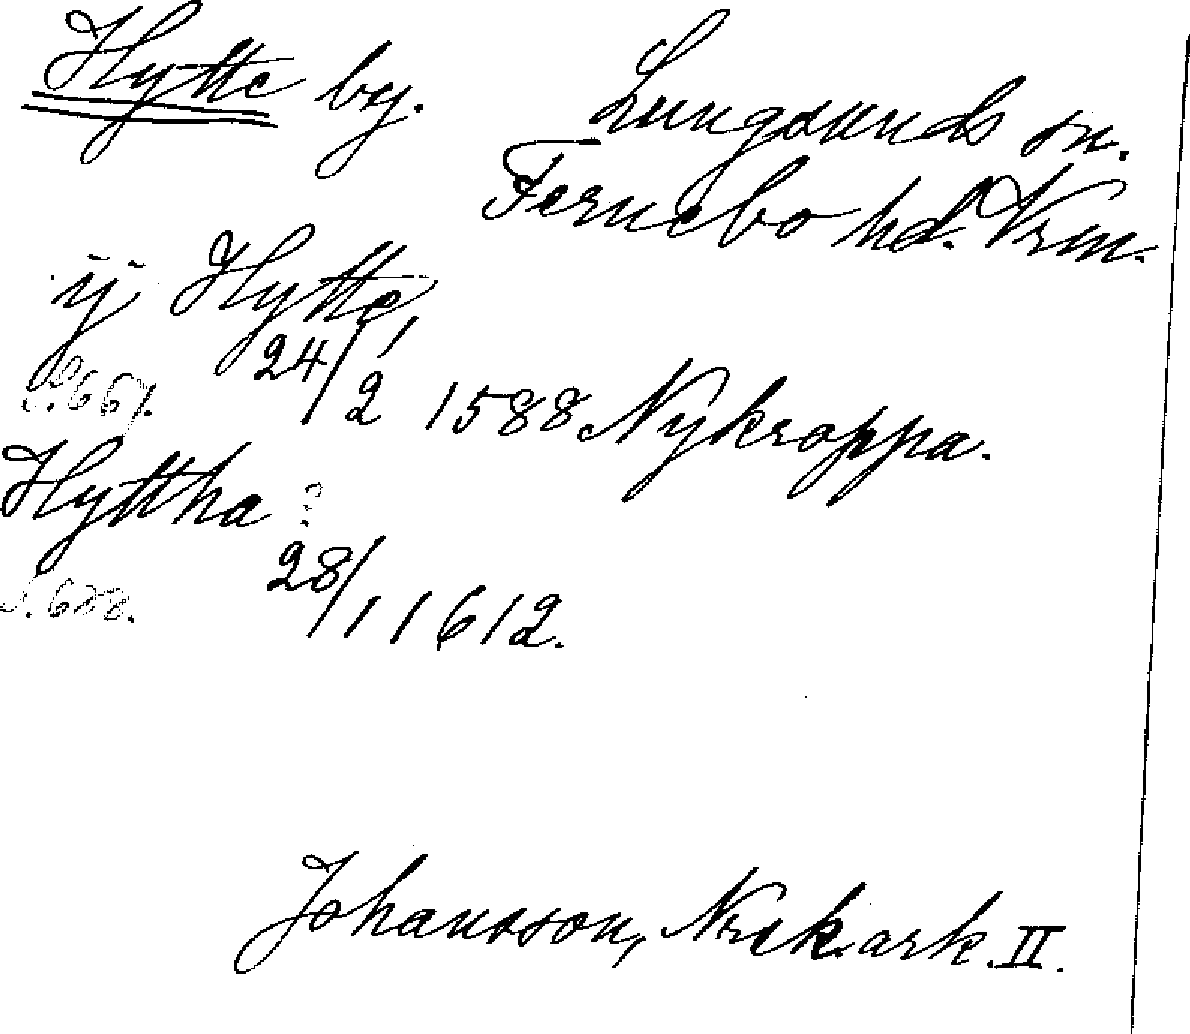 Hytte by. Lungsunds sn.
Fernebo hd. Vrm.
ij Hytte
24/2 1588 Nykroppa.
S. 667.
Hyttha
28/1 1612.
S. 688.
Johansson, Norsk. ark. II.